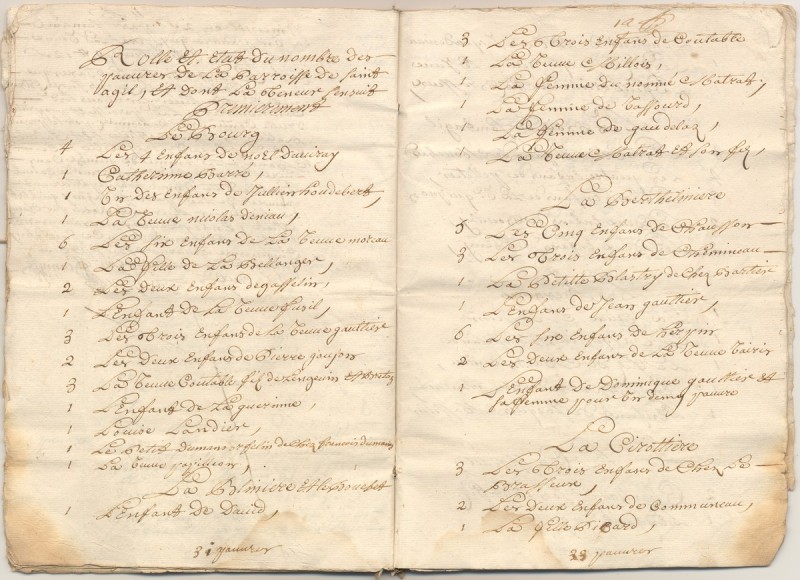 Rolle et Etat du nombre des
pauvres de La Parroisse de Saint
agil, et dont La teneur Sensuit
Premierement
Le Bourg
4 Les 4 Enfans de noel
1 Catherinne Barré,
1 Un des Enfans de Jullien houdebert,
1 La Veuve nicolas deniau,
6 Les six Enfans de La Veuve moreau
1 La fille de La Bellanger,
2 Les deux Enfans de gasselin,
1 L'Enfant de La Veuve fusil,
3 Les Trois Enfans de La Veuve gaultier
2 Les Deux Enfans de Pierre goujon
3 La Veuve Coutable
1 L'Enfant de La guerinne,
1 Louise Landier,
1 Le Petit Dumans orfelin de Chez francois dumans
1 La Veuve papillon,
La et le
1 L'Enfant de David,
31 pauvres
3 Les Trois Enfans de Coutable
1 La Veuve Millois,
1 La femme du nommé Matrat,
1 La femme de Tassourd,
La femme de
1 La Veuve Matrat et son fils,
La Berthelniere
5 Les Cinq Enfans de Chausson
3 Les Trois Enfans de Chemineau
1 La Petitte de Chez
1 L'Enfans de Jean gaultier,
6 Les six Enfans de
2 Les deux Enfans de La Veuve
1 L'Enfant de Dominique gaultier et
sa femme pour Un demy pauvre
La Cirottiere
3 Les Trois Enfans de Chez Le
Brasseur,
2 Les deux Enfans de Communeau,
1 La fille Picard,
pauvres